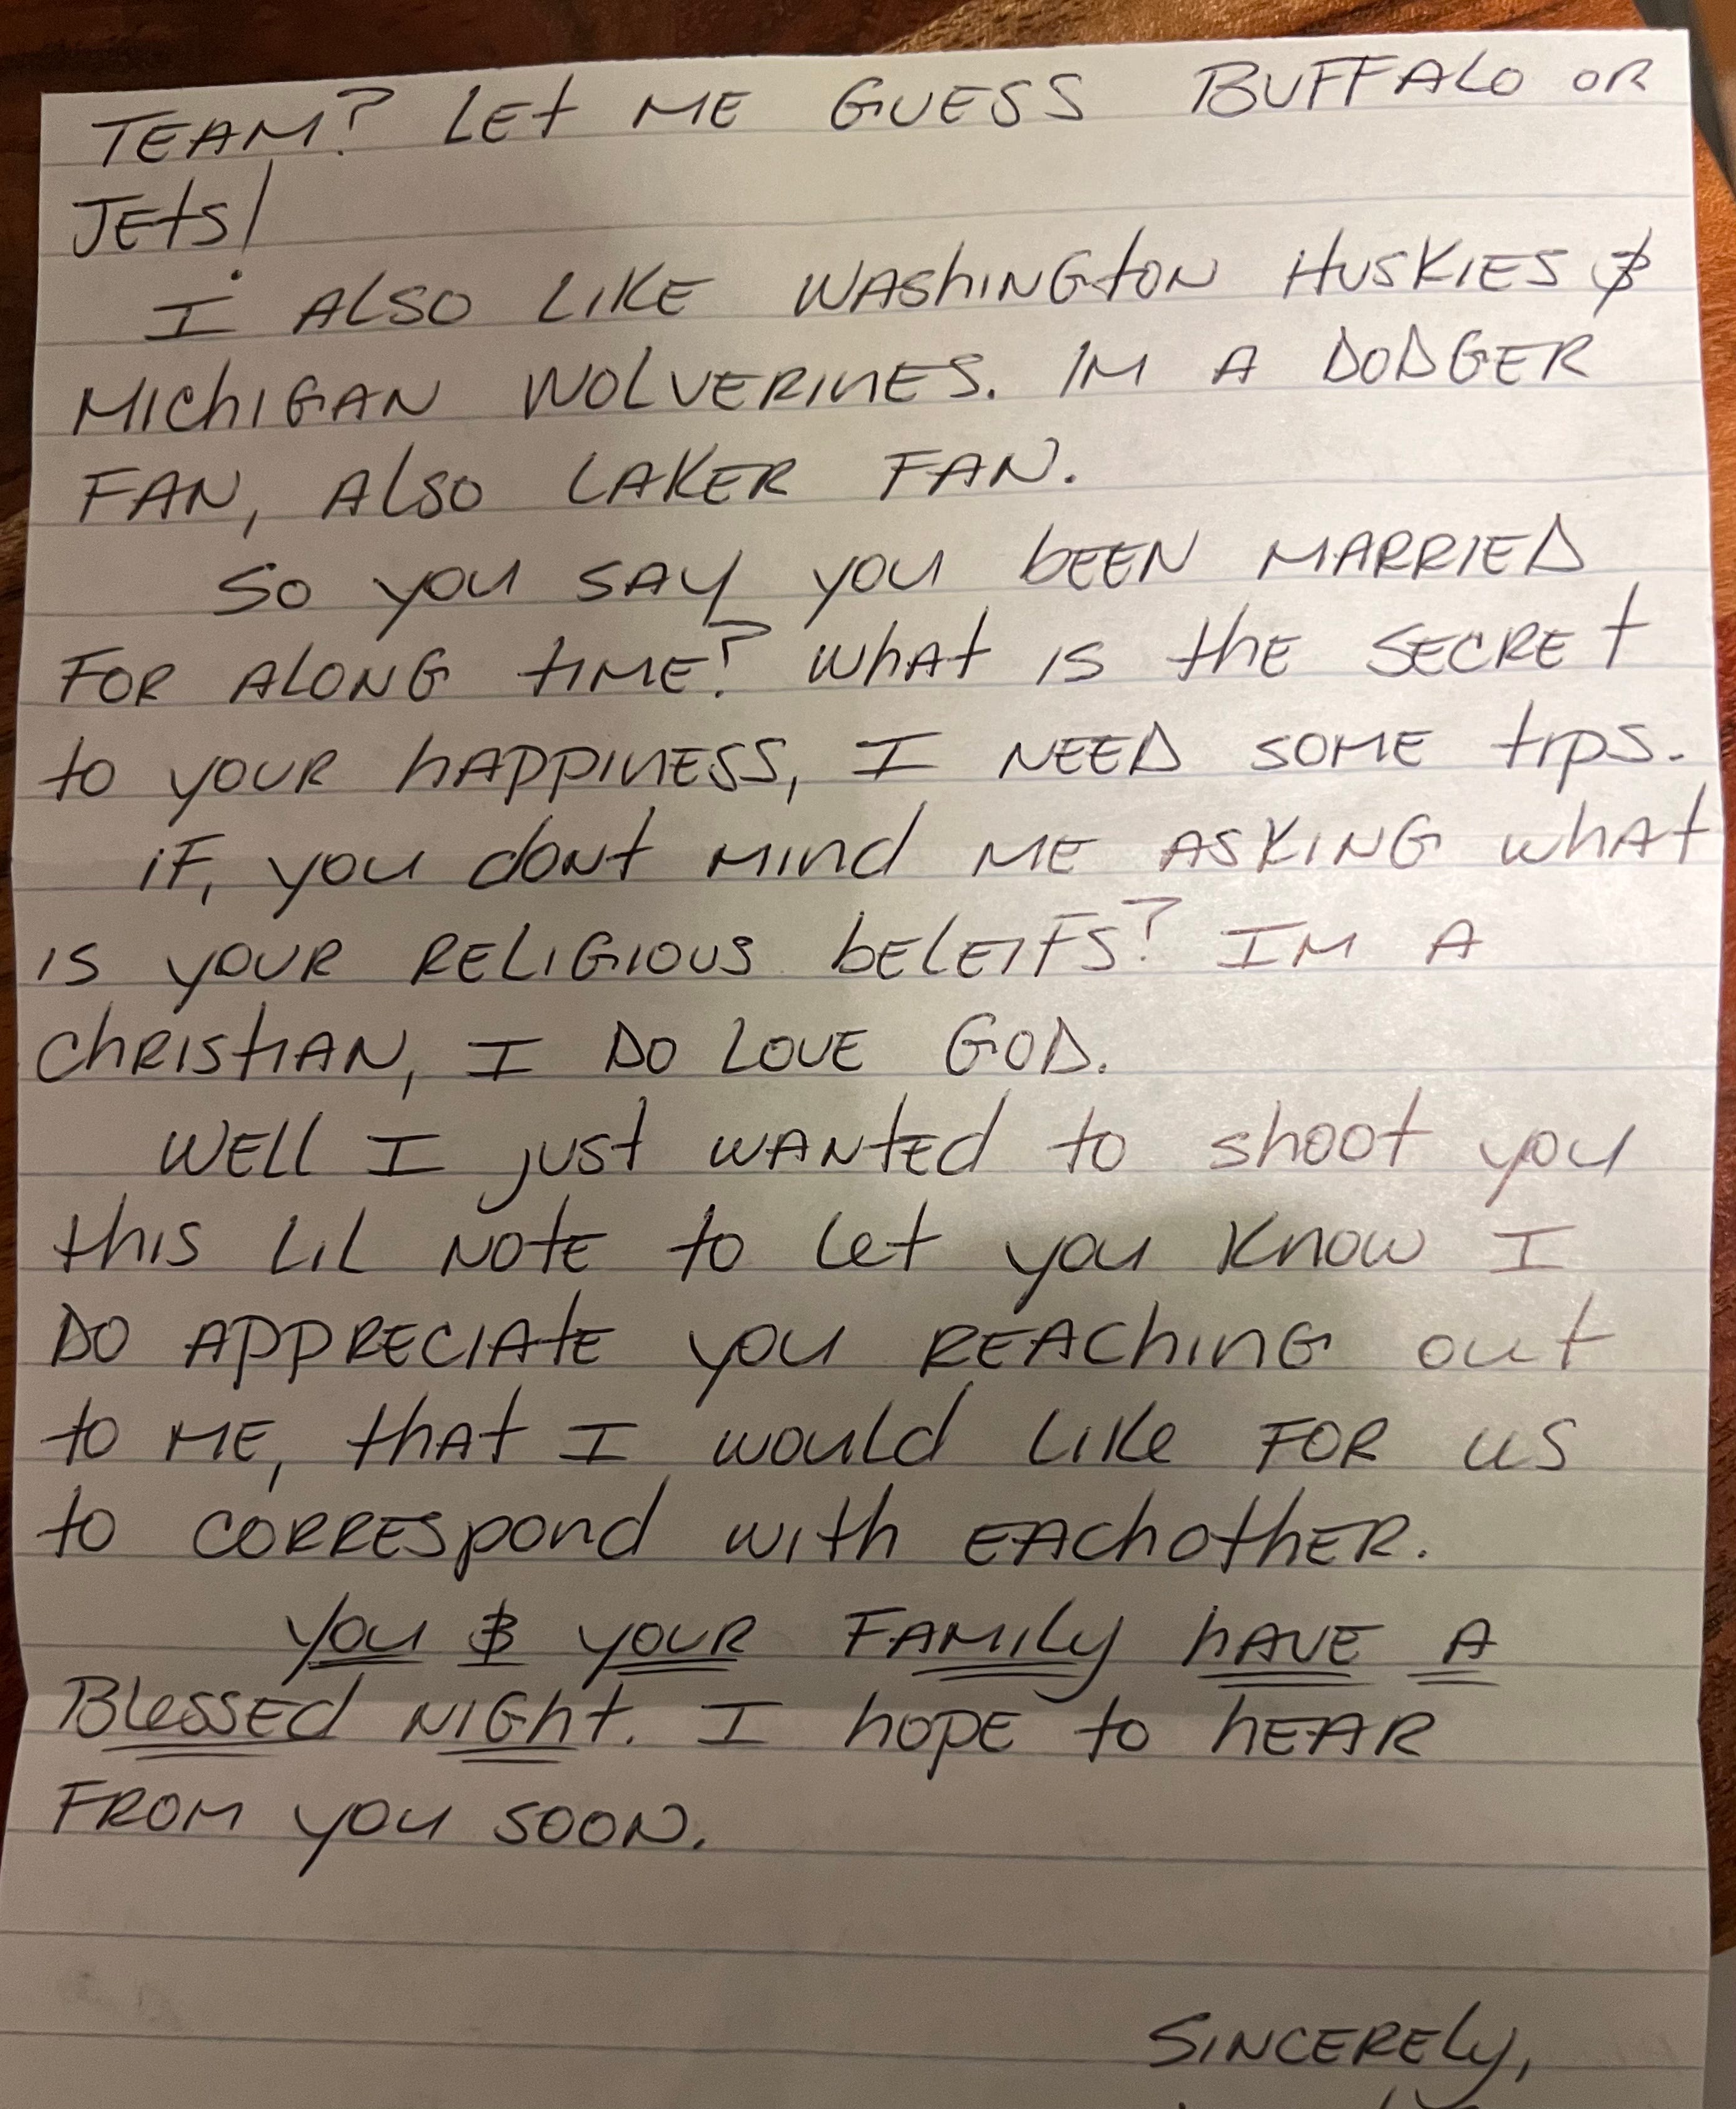 TEAM? LEt ME GUESS BUFFALO OR
JEtS!
I ALSO LIKE WAShINGtON HUSKIES &
MIChIGAN WOLVERINES. IM A DODGER
FAN, ALSO LAKER FAN.
SO you SAY you bEEN MARRIED
FOR ALONG tIME? WhAt IS thE SECREt
to youR hAPPINESS, I NEED SOME tIPS.
iF, you dont MINd ME ASKING whAt
IS YOUR RELIGIOUS bELEIFS? IM A
ChRIStIAN, I DO LOVE GOD.
WELL I just WANtEd to shoot you
this LiL NOtE to Let you Know I
DO APPRECIAtE you REAChING out
to ME, thAt I would Like FOR us
to CORRESpond with EAChothER.
you & youR FAMILy hAVE A
BlessED NIGht. I hOPE to hEAR
FROM you SOON.
SINCERELy,